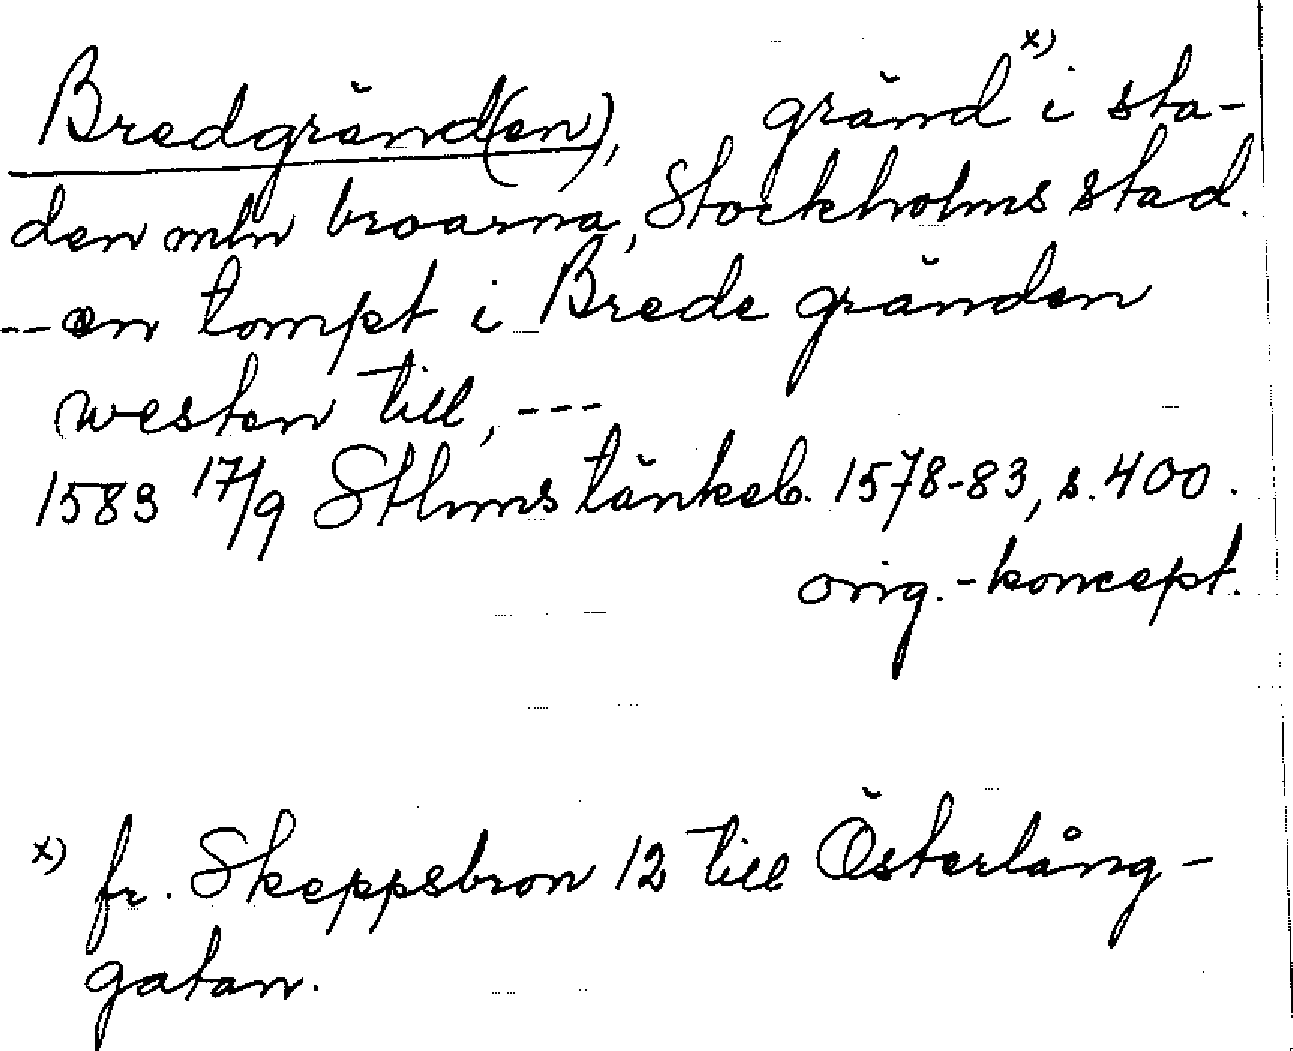 Bredgränd(en), gränd x) i sta-
den mln broarna, Stockholms stad.
-- en tompt i Brede gränden
westen till, ---
1583 17/9 Sthms tänkeb. 1578-83, s. 400.
orig.-koncept.
x) fr. Skeppsbron 12 till Österlång-
gatan.